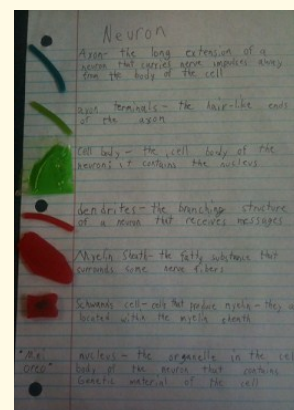 Neuron
Axon - the long extension of a
neuron that carries nerve impulses away
from the body of the cell
axon terminals - the hair-like ends
of the axon
Cell body - the cell body of the
neuron; it contains the nucleus
dendrites - the branching structure
of a neuron that receives messages
Myelin Sheath - the fatty substance that
surronds some nerve fibers
Schwanns cell - cells that produce myelin - they a
located within the myelin sheath
nucleus - the organelle in the cel
body of the neuron that contains
Genetic material of the cell
oreo"